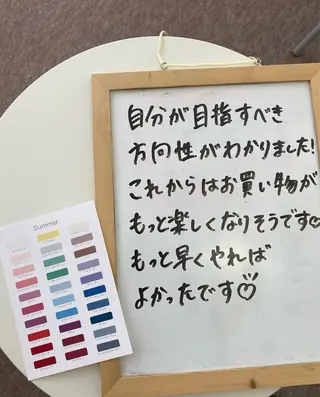 自分が目指すべき
方向性がわかりました!
これからはお買い物が
もっと楽しくなりそうです♡
もっと早くやれば
よかったです♡
Summer